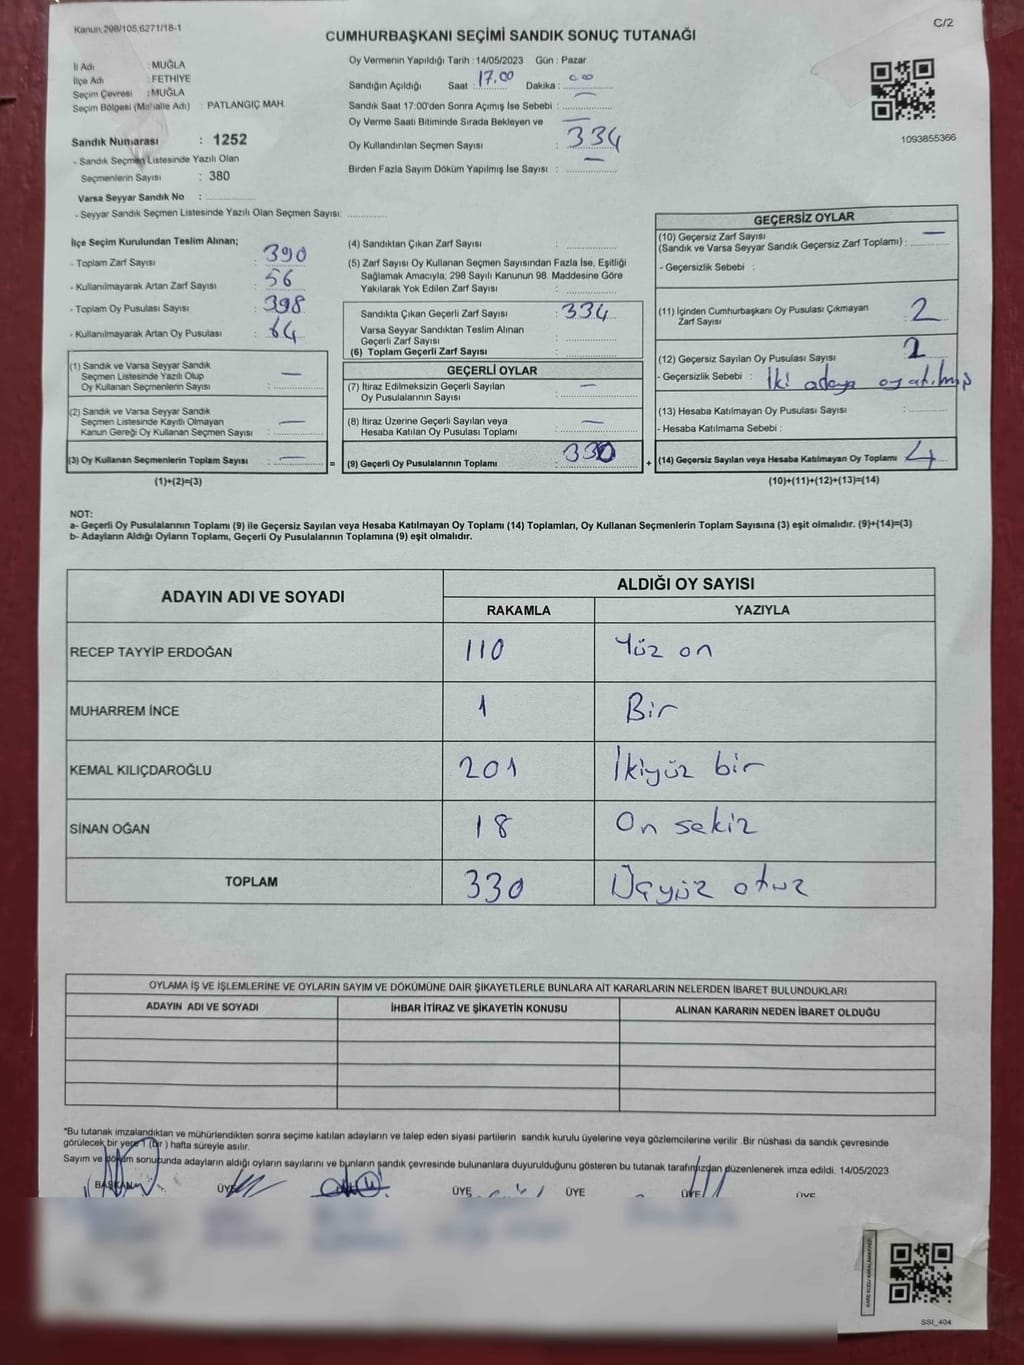 Kanun;298/105,6271/18-1
C/2
CUMHURBAŞKANI SEÇİMİ SANDIK SONUÇ TUTANAĞI
İl Adı : MUĞLA
İlçe Adı : FETHİYE
Seçim Çevresi : MUĞLA
Seçim Bölgesi (Mahalle Adı) : PATLANGIÇ MAH.
Sandık Numarası : 1252
- Sandık Seçmen Listesinde Yazılı Olan
Seçmenlerin Sayısı : 380
Varsa Seyyar Sandık No :
- Seyyar Sandık Seçmen Listesinde Yazılı Olan Seçmen Sayısı:
Oy Vermenin Yapıldığı Tarih : 14/05/2023 Gün : Pazar
Sandığın Açıldığı Saat 17.00 Dakika :
Sandık Saat 17:00'den Sonra Açımış İse Sebebi :
Oy Verme Saati Bitiminde Sırada Bekleyen ve
Oy Kullandırılan Seçmen Sayısı : 334
Birden Fazla Sayım Döküm Yapılmış İse Sayısı : —
1093855366
İlçe Seçim Kurulundan Teslim Alınan;
- Toplam Zarf Sayısı : 390
- Kullanılmayarak Artan Zarf Sayısı : 56
- Toplam Oy Pusulası Sayısı : 398
- Kullanılmayarak Artan Oy Pusulası : 64
(1) Sandık ve Varsa Seyyar Sandık
Seçmen Listesinde Yazılı Olup
Oy Kullanan Seçmenlerin Sayısı : —
(2) Sandık ve Varsa Seyyar Sandık
Seçmen Listesinde Kayıtlı Olmayan
Kanun Gereği Oy Kullanan Seçmen Sayısı : —
(3) Oy Kullanan Seçmenlerin Toplam Sayısı : — =
(1)+(2)=(3)
(4) Sandıktan Çıkan Zarf Sayısı :
(5) Zarf Sayısı Oy Kullanan Seçmen Sayısından Fazla İse, Eşitliği
Sağlamak Amacıyla; 298 Sayılı Kanunun 98. Maddesine Göre
Yakılarak Yok Edilen Zarf Sayısı :
Sandıkta Çıkan Geçerli Zarf Sayısı : 334
Varsa Seyyar Sandıktan Teslim Alınan
Geçerli Zarf Sayısı :
(6) Toplam Geçerli Zarf Sayısı :
GEÇERLİ OYLAR
(7) İtiraz Edilmeksizin Geçerli Sayılan : —
Oy Pusulasının Sayısı
(8) İtiraz Üzerine Geçerli Sayılan veya : —
Hesaba Katılan Oy Pusulası Toplamı
(9) Geçerli Oy Pusulalarının Toplamı : 330 +
GEÇERSİZ OYLAR
(10) Geçersiz Zarf Sayısı —
(Sandık ve Varsa Seyyar Sandık Geçersiz Zarf Toplamı) :
- Geçersizlik Sebebi :
(11) İçinden Cumhurbaşkanı Oy Pusulası Çıkmayan
Zarf Sayısı : 2
(12) Geçersiz Sayılan Oy Pusulası Sayısı : 2
- Geçersizlik Sebebi : İki adaya oy atılmış
(13) Hesaba Katılmayan Oy Pusulası Sayısı :
- Hesaba Katılmama Sebebi :
(14) Geçersiz Sayılan veya Hesaba Katılmayan Oy Toplamı 4
(10)+(11)+(12)+(13)=(14)
NOT:
a- Geçerli Oy Pusulalarının Toplamı (9) ile Geçersiz Sayılan veya Hesaba Katılmayan Oy Toplamı (14) Toplamları, Oy Kullanan Seçmenlerin Toplam Sayısına (3) eşit olmalıdır. (9)+(14)=(3)
b- Adayların Aldığı Oyların Toplamı, Geçerli Oy Pusulalarının Toplamına (9) eşit olmalıdır.
ADAYIN ADI VE SOYADI
ALDIĞI OY SAYISI
RAKAMLA YAZIYLA
RECEP TAYYİP ERDOĞAN 110 Yüz on
MUHARREM İNCE 1 Bir
KEMAL KILIÇDAROĞLU 201 İkiyüz bir
SİNAN OĞAN 18 On sekiz
TOPLAM 330 Üçyüz otuz
OYLAMA İŞ VE İŞLEMLERİNE VE OYLARIN SAYIM VE DÖKÜMÜNE DAİR ŞİKAYETLERLE BUNLARA AİT KARARLARIN NELERDEN İBARET BULUNDUKLARI
ADAYIN ADI VE SOYADI İHBAR İTİRAZ VE ŞİKAYETİN KONUSU ALINAN KARARIN NEDEN İBARET OLDUĞU
*Bu tutanak imzalandıktan ve mühürlendikten sonra seçime katılan adayların ve talep eden siyasi partilerin sandık kurulu üyelerine veya gözlemcilerine verilir .Bir nüshası da sandık çevresinde
görülecek bir yere 1 (bir ) hafta süreyle asılır.
Sayım ve döküm sonucunda adayların aldığı oyların sayılarını ve bunların sandık çevresinde bulunanlara duyurulduğunu gösteren bu tutanak tarafımızdan düzenlenerek imza edildi. 14/05/2023
BAŞKAN ÜYE ÜYE ÜYE ÜYE ÜYE
SSI_404